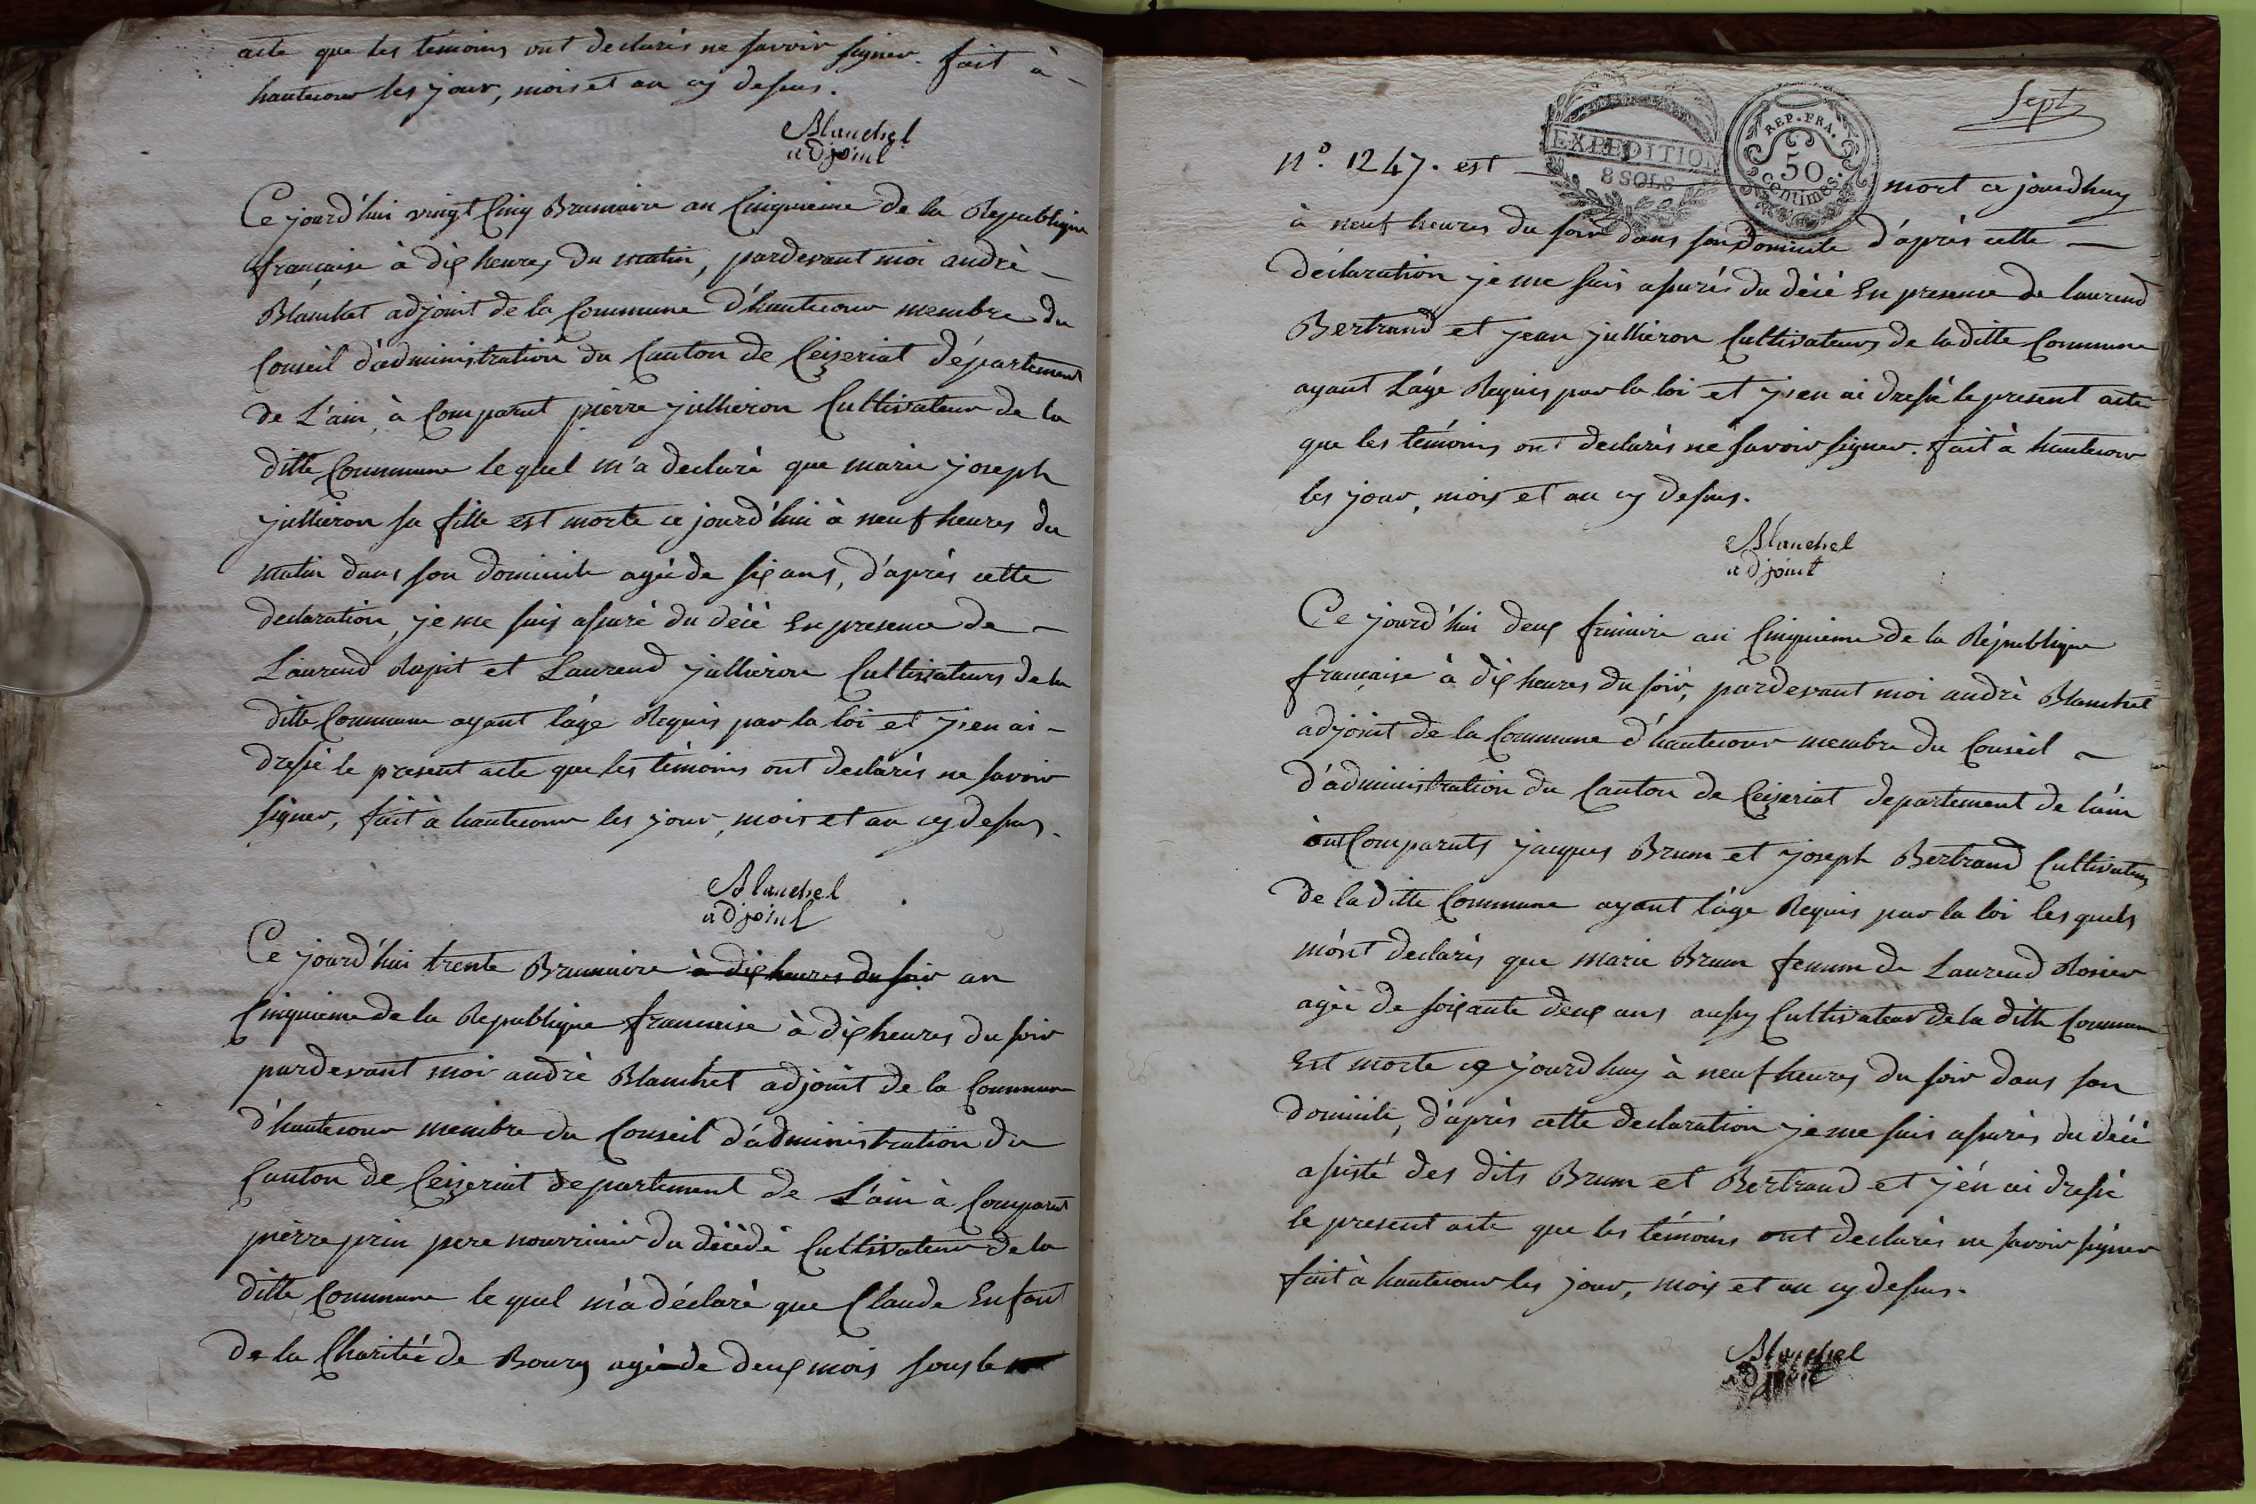 acte que les témoins ont declarés ne savoir signer. fait à
hautecour les jour, mois et an cy dessus.
Blanchet
adjoint
Ce jourd'hui vingt Cinq Brumaire an Cinquieme de la Republique
française à dix heures du matin, pardevant moi andré
Blanchet adjoint de la Commune d'hautecour membre du
Conseil d'administration du Canton de Ceizeriat département
de L'ain, à Comparut pierre jullieron Cultivateur de la
ditte Commune le quel m'a declaré que marie joseph
jullieron sa fille est morte ce jourd'hui à neuf heures du
matin dans son domicile agée de six ans, d'après cette
declaration, je me suis assuré du décé En presence de
Laurend Rapit et Laurend jullieron Cultivateurs de la
ditte Commune ayant l'âge Requis par la loi et j'en ai
dressé le present acte que les témoins ont declarés ne savoir
signer, fait à hautecour les jour, mois et an cy dessus.
Blanchet
adjoint
Ce jourd'hui trente Brumaire à dix heures du soir an
Cinquieme de la Republique francaise à dix heures du soir
pardevant moi andré Blanchet adjoint de la Commune
d'hautecour membre du Conseil d'administration du
Canton de Ceizeriat departement de L'ain à Comparut
pierre prin pere nourricier du décédé Cultivateur de la
ditte Commune le quel m'a déclaré que Claude Enfant
de la Charitée de Bourg agé de deux mois sous le
Sept
EXPEDITION
8 SOLS
REP. FRA.
50
centimes.
N.º 1247. est mort ce jourdhuy
à neuf heures du soir dans son domicile d'après cette
déclaration je me suis assurés du décé En presence de laurend
Bertrand et jean jullieron Cultivateurs de la ditte Commune
ayant L'âge Requis par la loi et j'en ai dressé le present acte
que les témoins ont declarés ne savoir signer. fait à hautecour
les jour, mois et an cy dessus.
Blanchet
adjoint
Ce jourd'hui deux frimaire an Cinquieme de la République
française à dix heures du soir, pardevant moi andré Blanchet
adjoint de la Commune d'hautecour membre du Conseil
d'administration du Canton de Ceizeriat departement de l'ain
ont Comparuts jacques Brun et joseph Bertrand Cultivateurs
de la ditte Commune ayant l'âge Requis par la loi les quels
m'ont declarés que marie Brun femme de Laurend Rosier
agée de soixante deux ans aussy Cultivateur de la ditte Commune
Est morte ce jourdhuy à neuf heures du soir dans son
domicile, d'après cette declaration je me suis assurés du décé
assisté des dits Brun et Bertrand et j'én ai dressé
le present acte que les témoins ont declarés ne savoir signer
fait à hautecour les jour, mois et an cy dessus.
Blanchet
adjoint